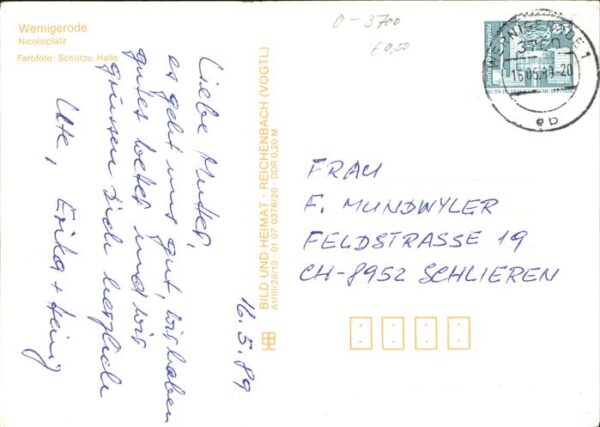 Wernigerode
Nicolaiplatz
Farbfoto: Schütze, Halle
O-3700
£ 0,50
WERNIGERODE 1
3700
16.05.89-20
eb
Liebe Mutter,
es geht uns gut, wir haben
gutes Wetter und wir
grüssen Dich herzlich
Ute, Erika + Heinz
16.5.89
BILD UND HEIMAT · REICHENBACH (VOGTL)
A1/III/26/13 · 01 07 0376/20 · DDR 0,20 M
FRAU
F. MUNDWYLER
FELDSTRASSE 19
CH-8952 SCHLIEREN